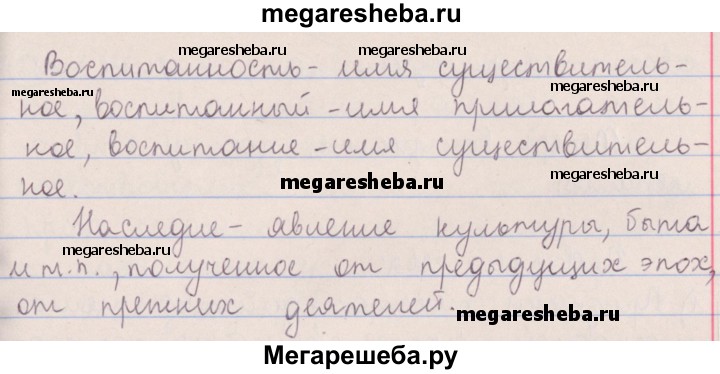 megaresheba.ru
megaresheba.ru megaresheba.ru
Воспитанность - имя существитель-
megaresheba.ru
ное, воспитанный - имя прилагатель-
ное, воспитание - имя существитель-
ное.
megaresheba.ru
Наследие - явление культуры, быта
megaresheba.ru
и т.п., полученное от предыдущих эпох,
от прежних деятелей.
megaresheba.ru
Мегарешеба.ру